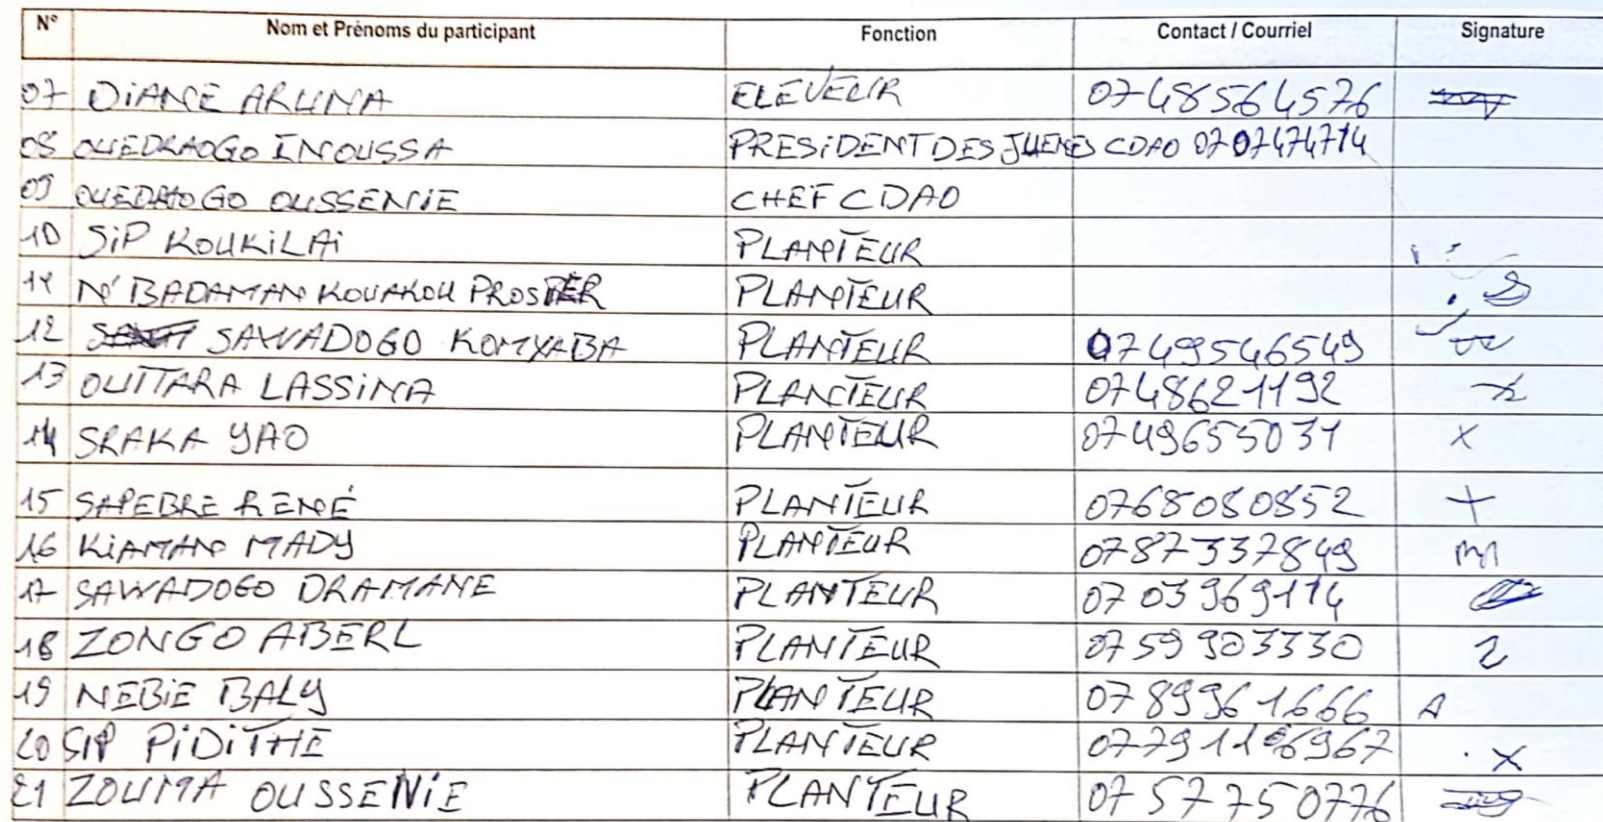 N° Nom et Prénoms du participant Fonction Contact / Courriel Signature
07 DIANE ARUNA ELEVEUR 0748564576
08 OUEDRAOGO INOUSSA PRESIDENT DES JUENES CDAO 0707474714
09 OUEDAOGO OUSSENIE CHEF CDAO
10 SIP KOUKILAI PLANTEUR
11 N'BADAMAN KOUAKOU PROSPER PLANTEUR
12 SAWADOGO KOMYABA PLANTEUR 0749546549
13 OUTTARA LASSINA PLANTEUR 0748621192
14 SRAKA YAO PLANTEUR 0749655031 X
15 SAPEBRE RENÉ PLANTEUR 0768080852 +
16 KIAMAN MADY PLANTEUR 0787337849 m
17 SAWADOGO DRAMANE PLANTEUR 07 03969114
18 ZONGO ABERL PLANTEUR 0759903330 2
19 NEBIE BALY PLANTEUR 0789961666 A
20 SIP PIDITHE PLANTEUR X
21 ZOUMA OUSSENIE PLANTEUR 0757750776